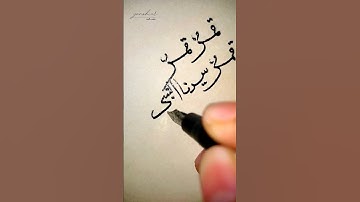 قمرٌ قمرٌ
قمرٌ سيدنا النبى